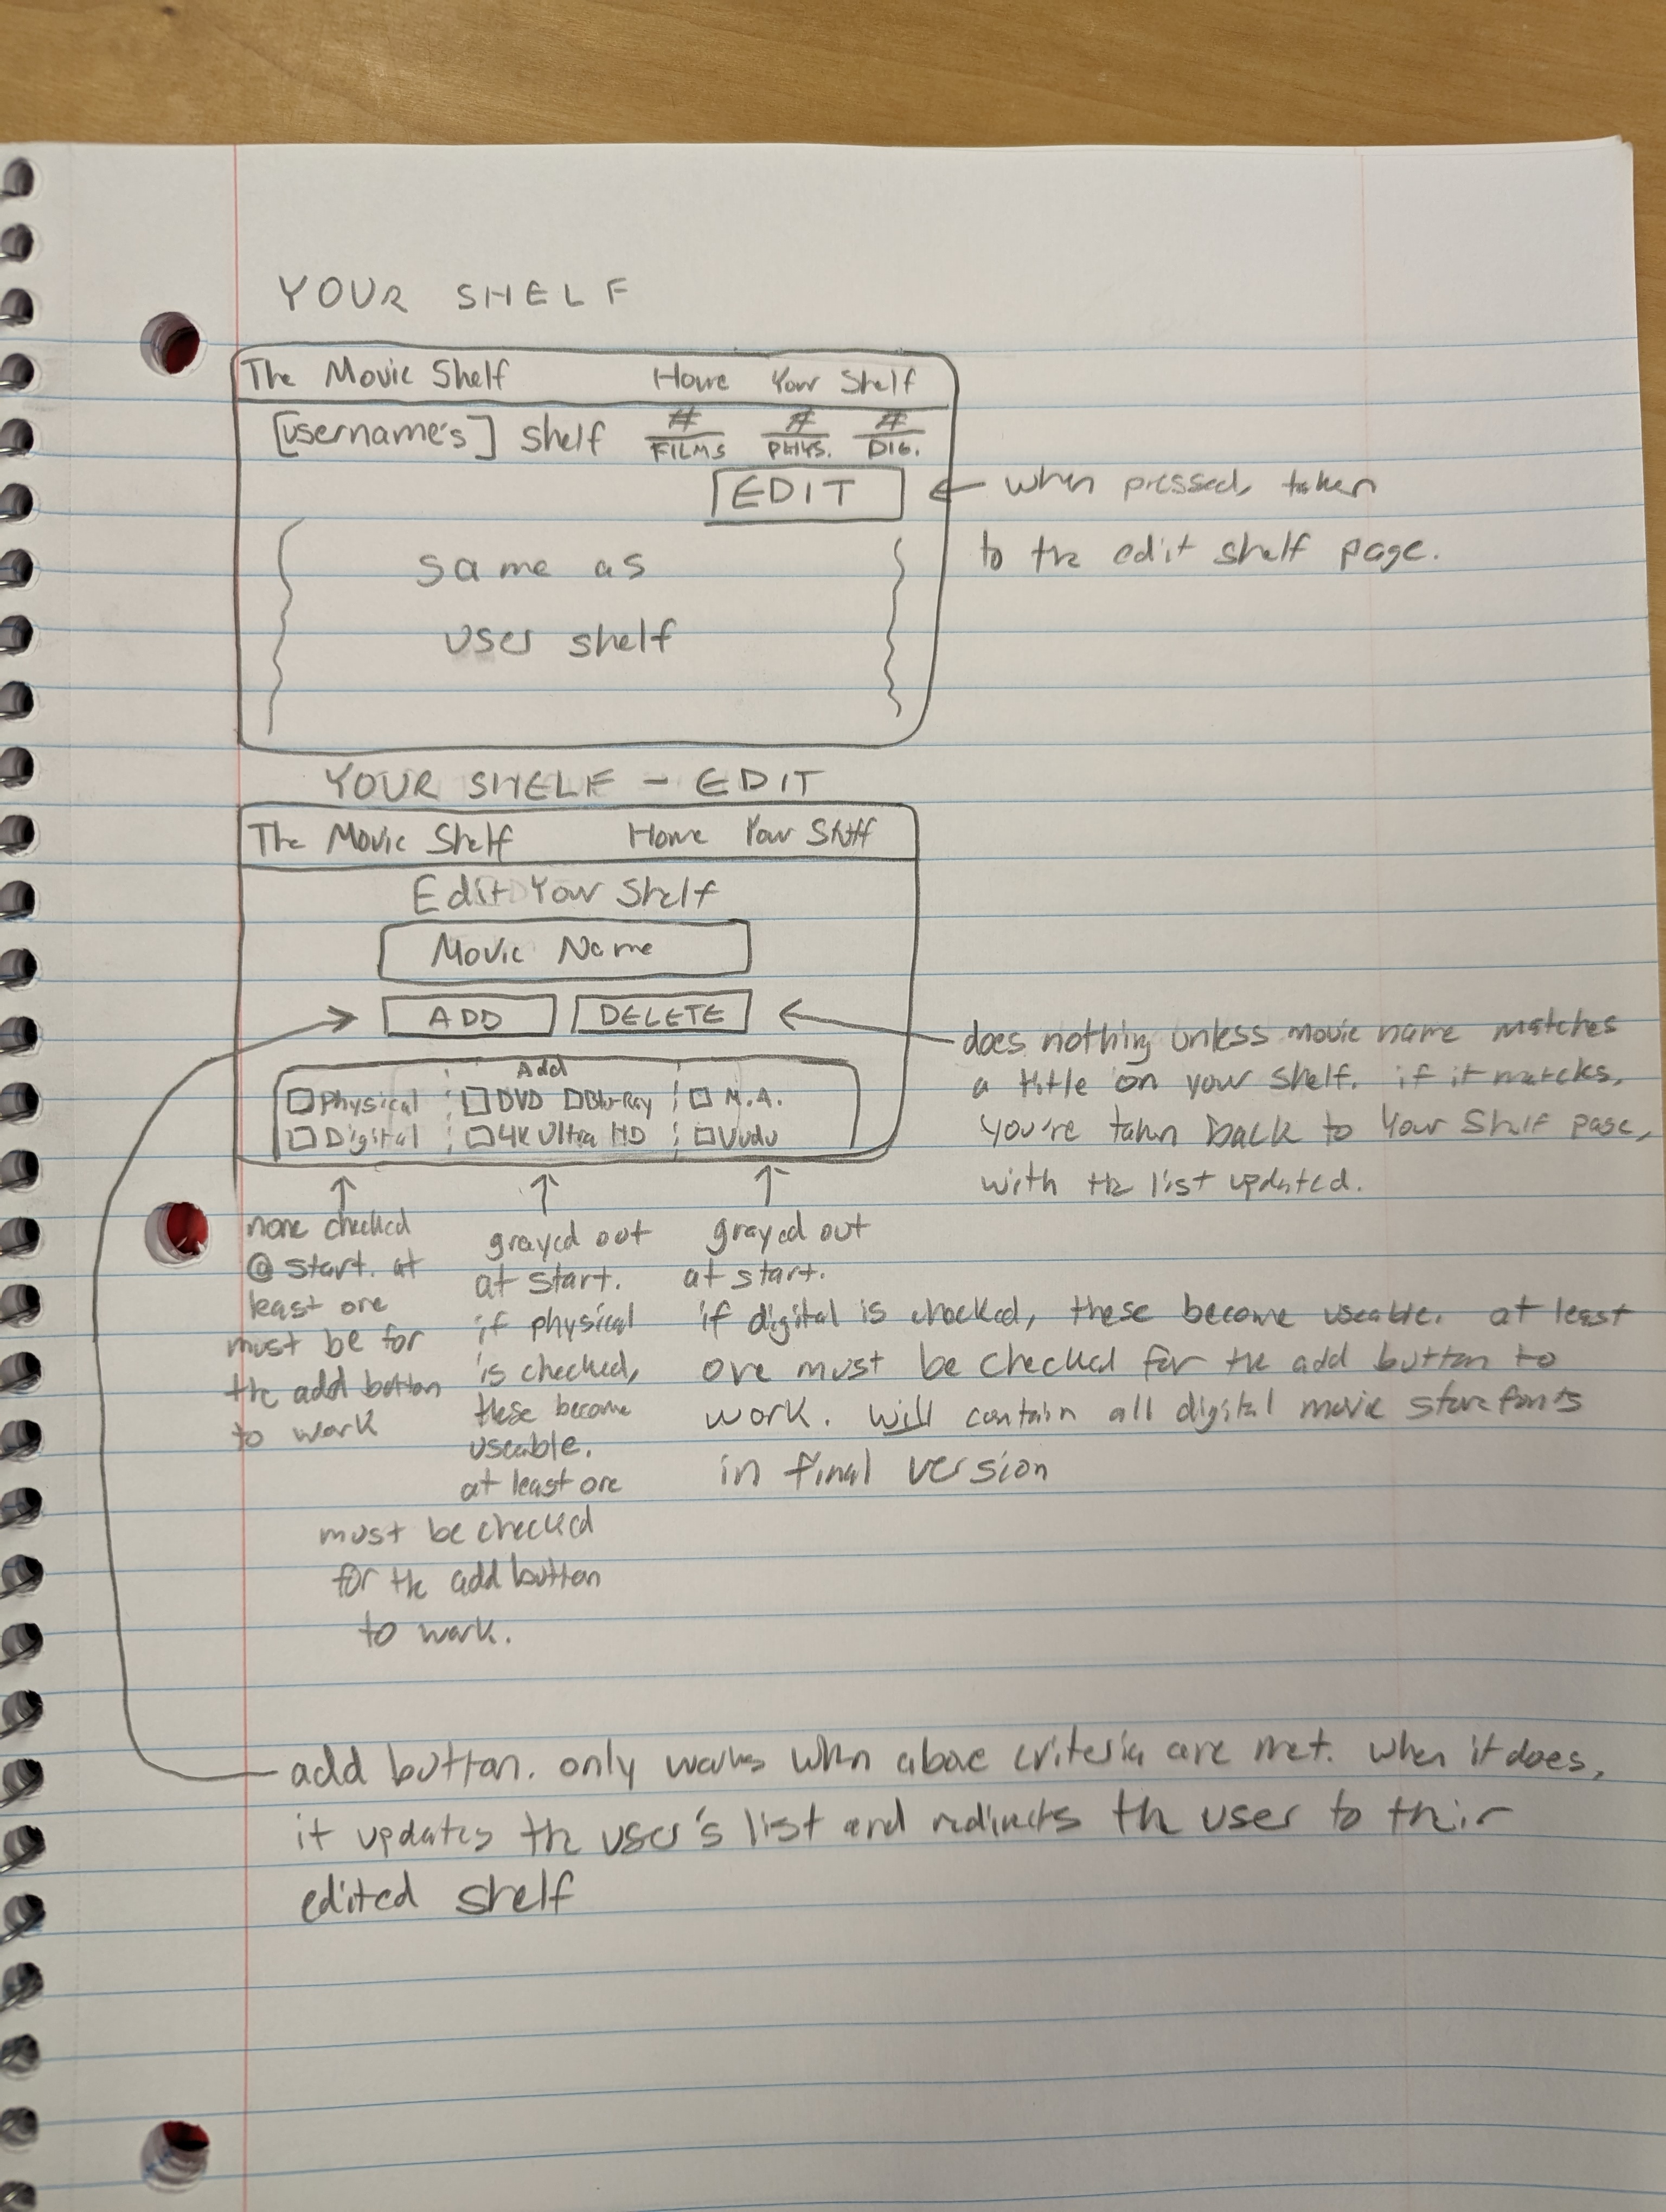 YOUR SHELF
The Movie Shelf Home Your Shelf
[username's] shelf # FILMS # PHYS. # DIG.
EDIT
when pressed, taken
to the edit shelf page.
same as
user shelf
YOUR SHELF - EDIT
The Movie Shelf Home Your Shelf
Edit Your Shelf
Movie Name
ADD DELETE
does nothing unless movie name matches
a title on your shelf. if it matches,
you're taken back to Your Shelf page,
with the list updated.
Add
Physical DVD Blu-Ray M.A.
Digital 4K Ultra HD Vudu
none checked
@ start. at
least one
must be for
the add button
to work
grayed out
at start.
if physical
is checked,
these become
useable.
at least one
must be checked
for the add button
to work.
grayed out
at start.
if digital is checked, these become useable. at least
one must be checked for the add button to
work. will contain all digital movie storefonts
in final version
add button. only works when above criteria are met. when it does,
it updates the user's list and redirects the user to their
edited shelf